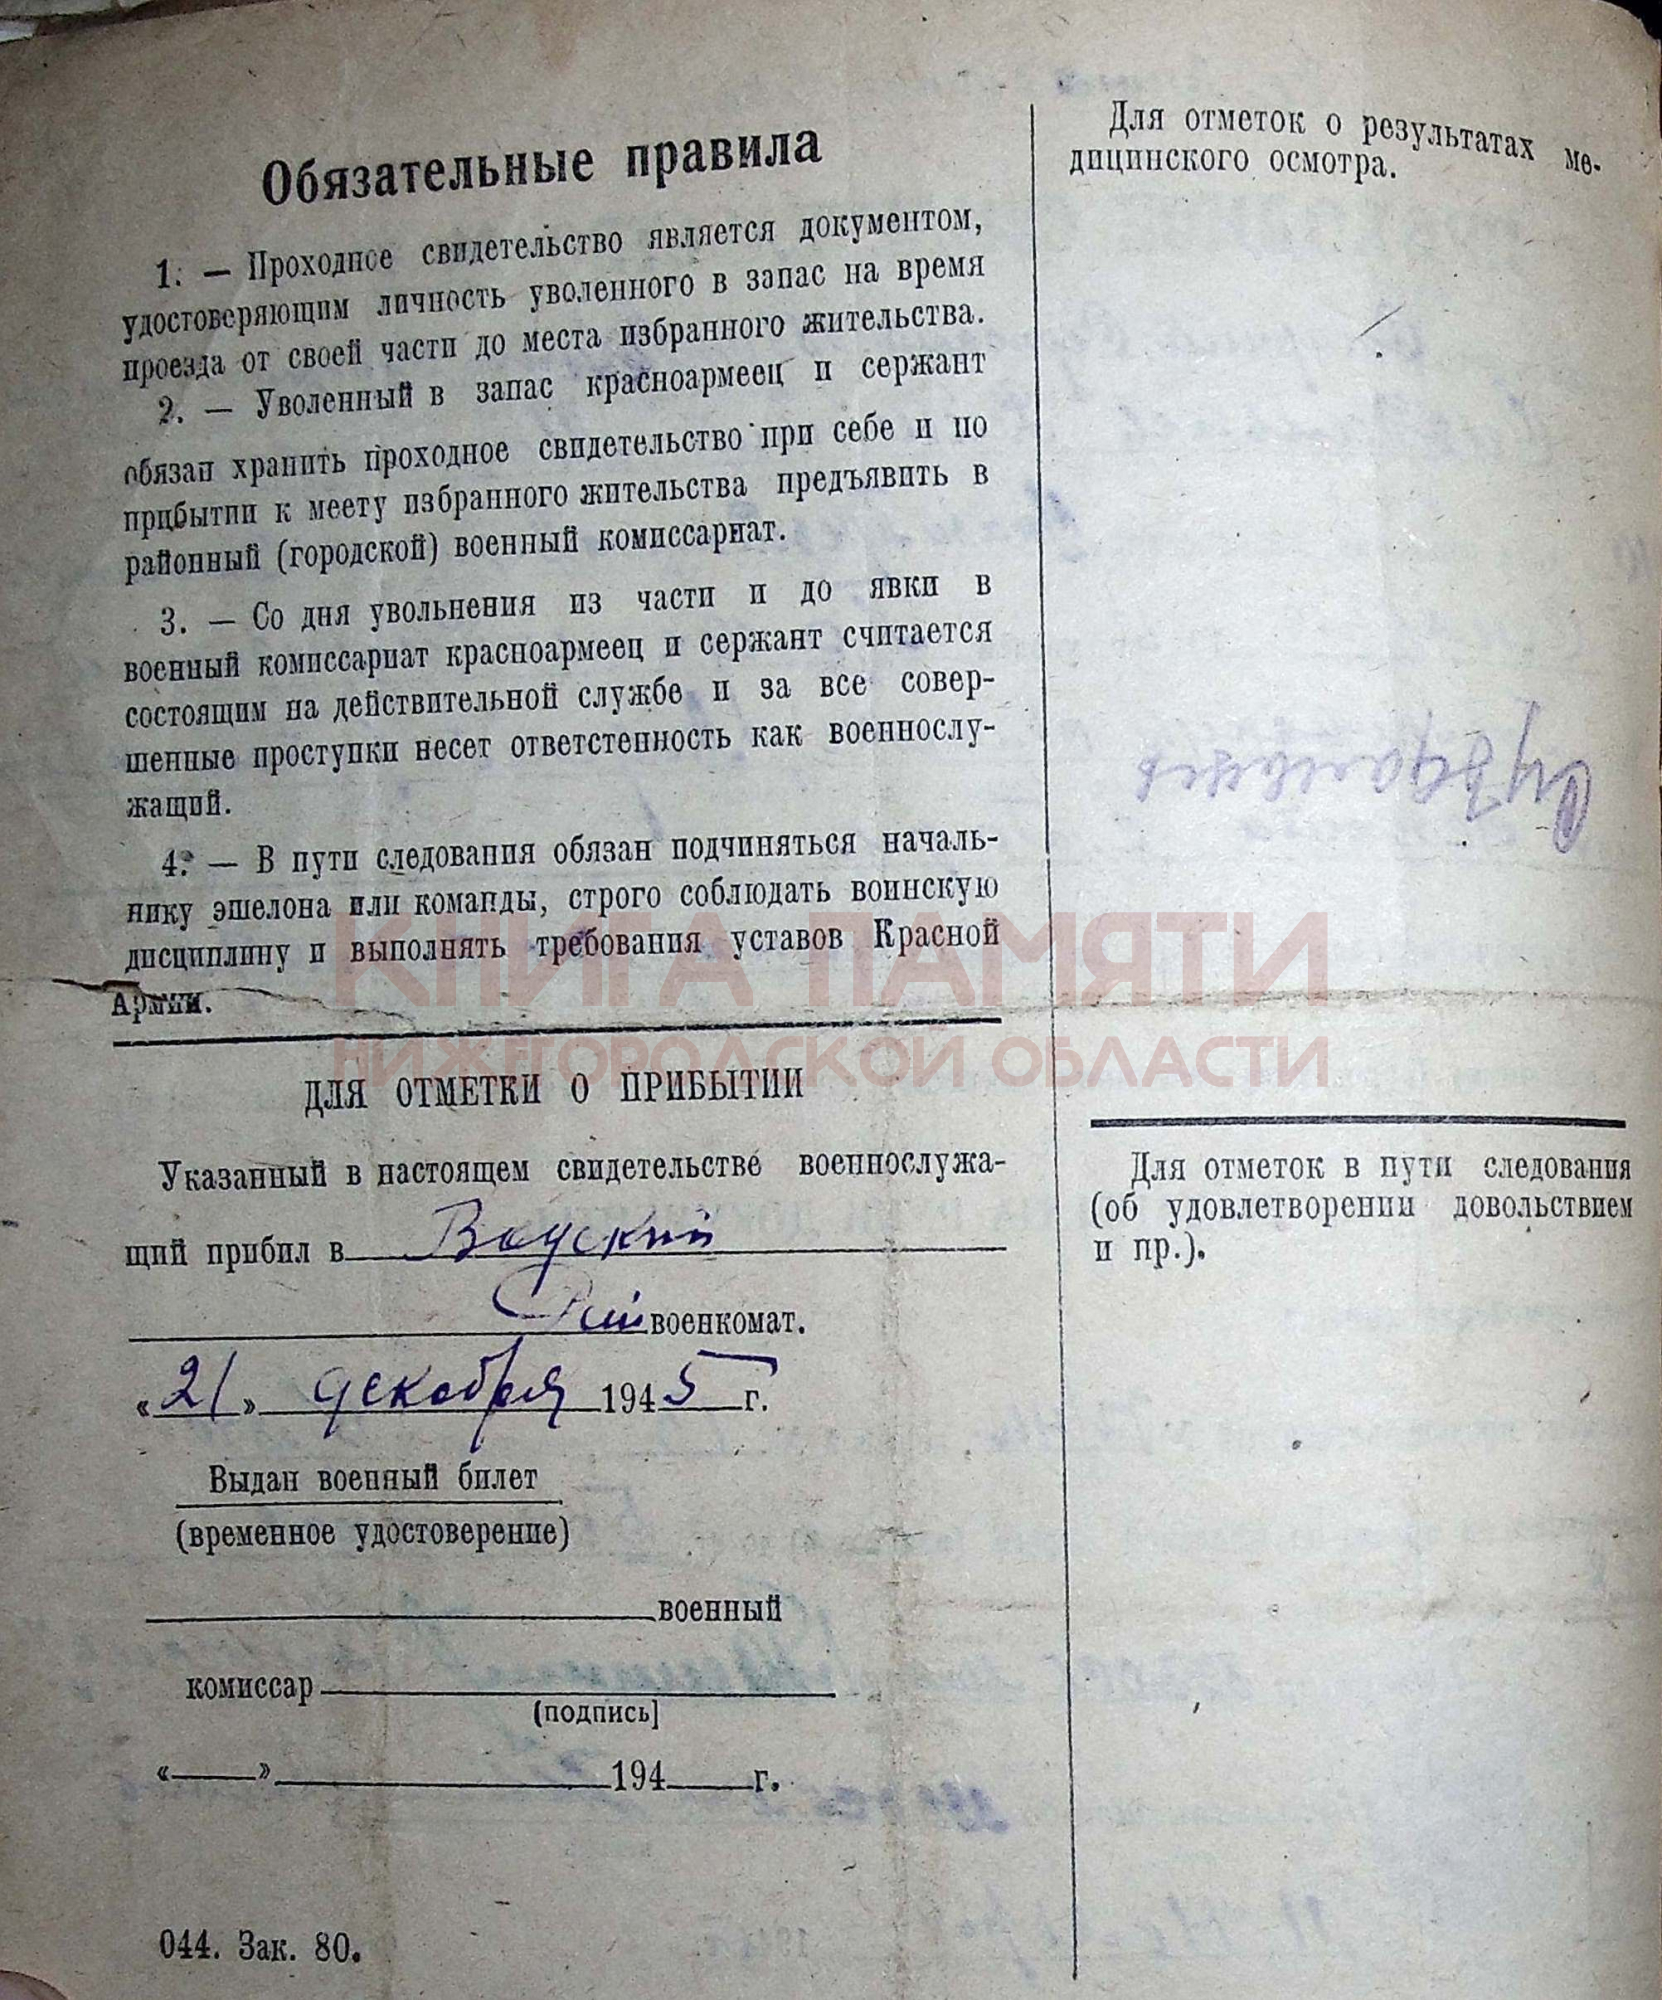 Обязательные правила
1. — Проходное свидетельство является документом,
удостоверяющим личность уволенного в запас на время
проезда от своей части до места избранного жительства.
2. — Уволенный в запас красноармеец и сержант
обязан хранить проходное свидетельство при себе и по
прцбытии к меету избранного жительства предъявить в
районный (городской) военный комиссариат.
3. — Со дня увольнения из части и до явки в
военный комиссариат красноармеец и сержант считается
состоящим на действительной службе и за все совер-
шенные проступки несет ответстенность как военнослу-
жащий.
4. — В пути следования обязан подчиняться началь-
нику эшелона или команды, строго соблюдать воинскую
дисциплину и выполнять требования уставов Красной
Армии.
КНИГА ПАМЯТИ
НИЖЕГОРОДСКОЙ ОБЛАСТИ
ДЛЯ ОТМЕТКИ О ПРИБЫТИИ
Указанный в настоящем свидетельстве военнослужа-
щий прибил в Вадский
Рай военкомат.
«21» декабря 1945 г.
Выдан военный билет
(временное удостоверение)
военный
комиссар
(подпись]
« » 194 г.
044. Зак. 80.
Для отметок о результатах ме-
дицинского осмотра.
Для отметок в пути следования
(об удовлетворении довольствием
и пр.).